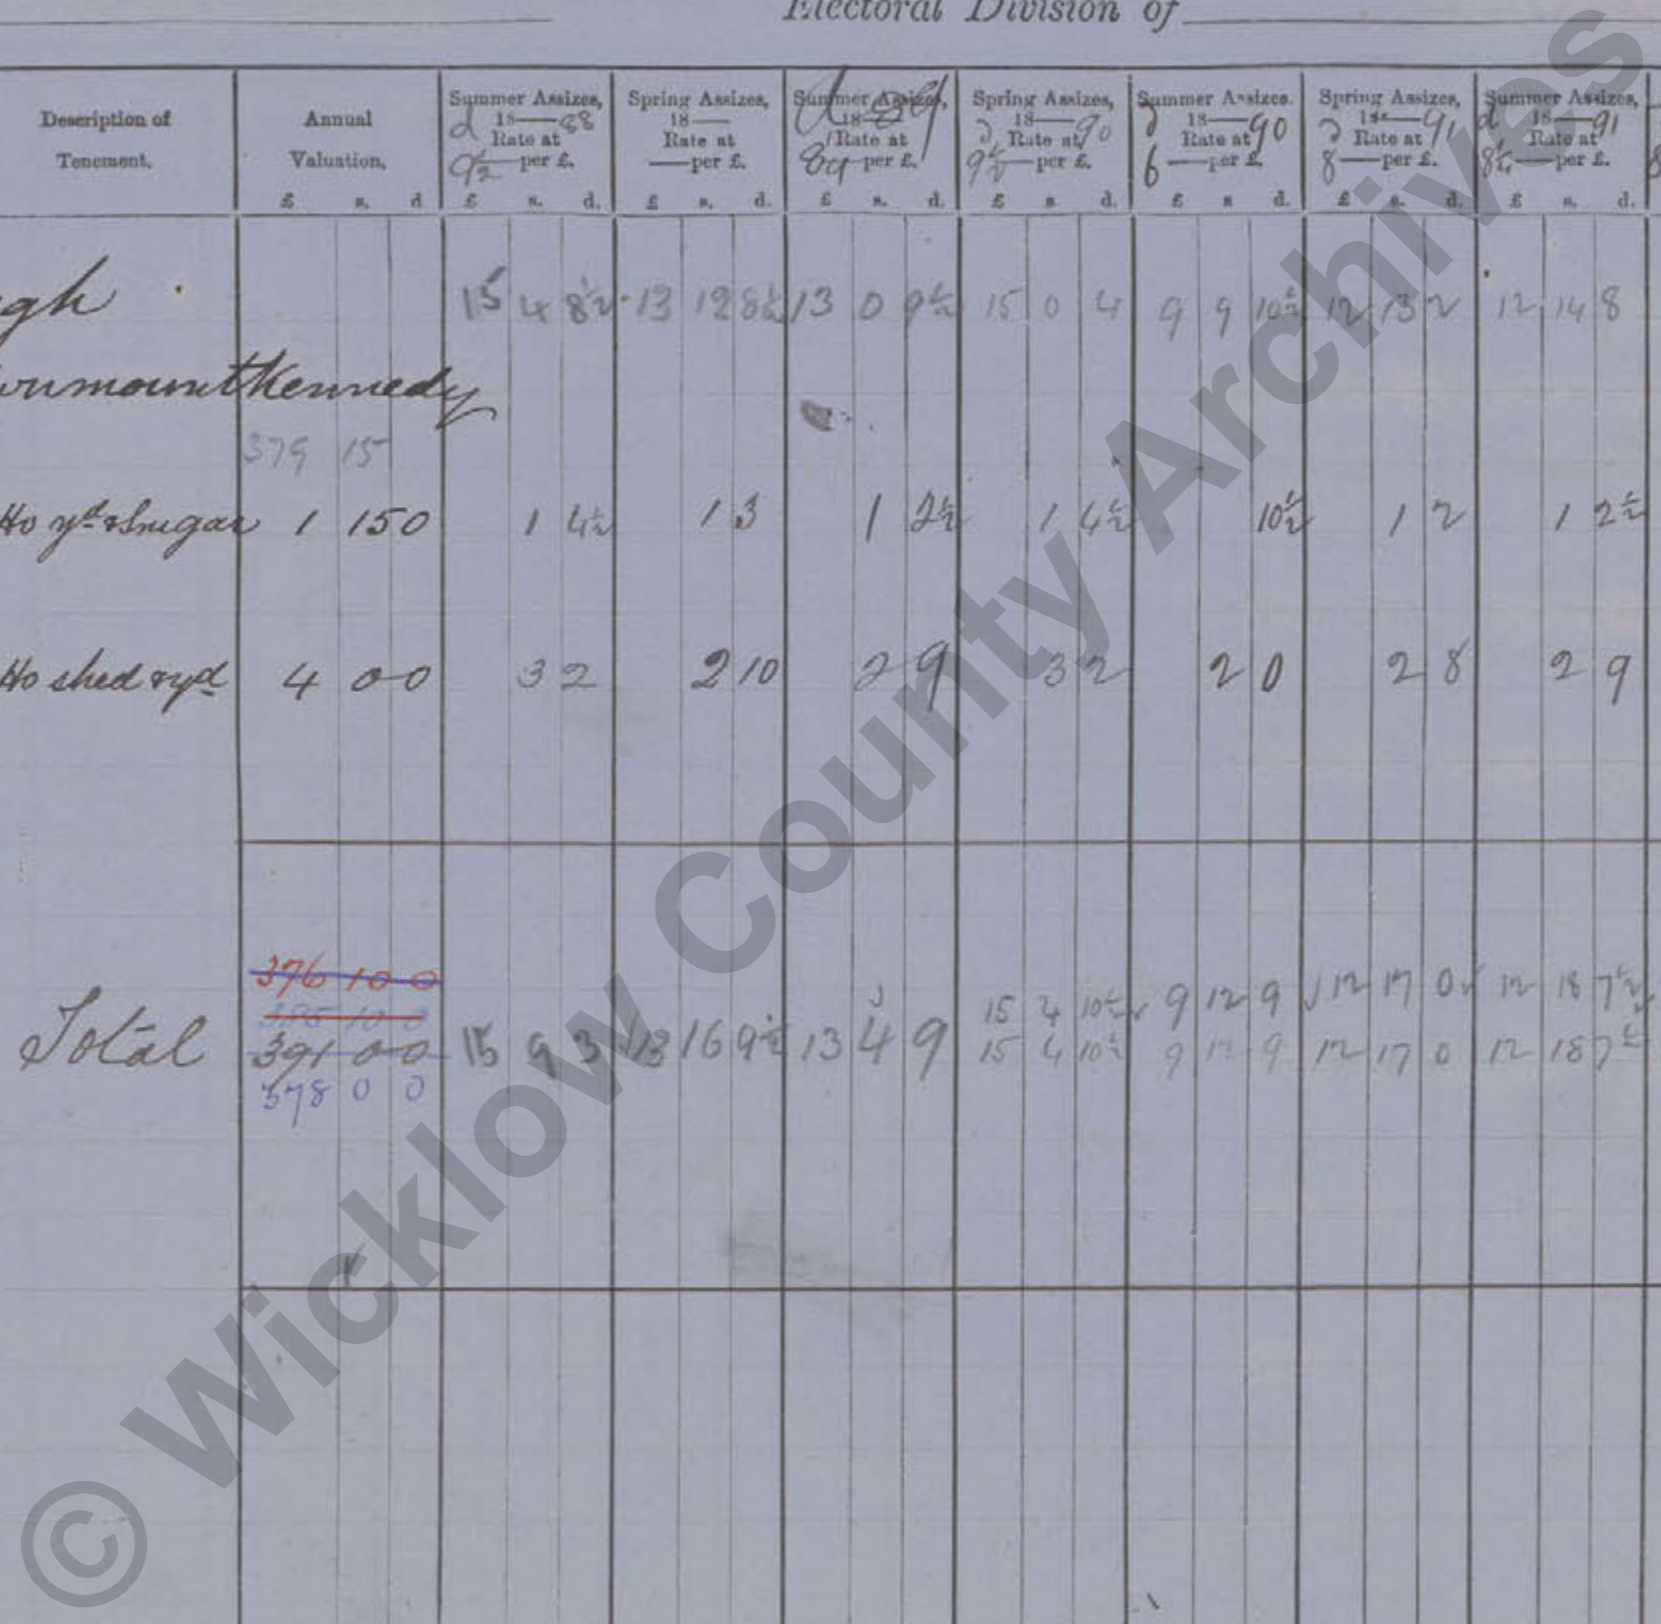 Electoral Division of
Description of Tenement. Annual Valuation, Summer Assizes, 18—88 Rate at 9½d per £. Spring Assizes, 18— Rate at — per £. Summer Assizes, 18—89 Rate at per £. Spring Assizes, 18—90 Rate at 9½d per £. Summer Assizes. 18—90 Rate at 6d per £. Spring Assizes, 18—91 Rate at 8d per £. Summer Assizes, 18—91 Rate at per £.
£ s. d £ s. d. £ s. d. £ s. d. £ s d. £ s d. £ s. d. £ s. d.
gh 15 4 8½ 13 12 8½ 13 0 9½ 15 0 4 9 9 10½ 12 13 2 12 14 8
mountKennedy
379 15
Ho yd & 1 15 0 1 4½ 1 3 1 2½ 1 4½ 10½ 1 2 1 2½
Ho shed & yd 4 0 0 3 2 2 10 2 9 3 2 2 0 2 8 2 9
376 10 0
385 10 0 15 4 10½ 9 12 9 12 17 0 12 18 7½
Total 391 0 0 15 9 3 13 16 9½ 13 4 9 15 4 10½ 9 12 9 12 17 0 12 18 7½
378 0 0
© Wicklow County Archives